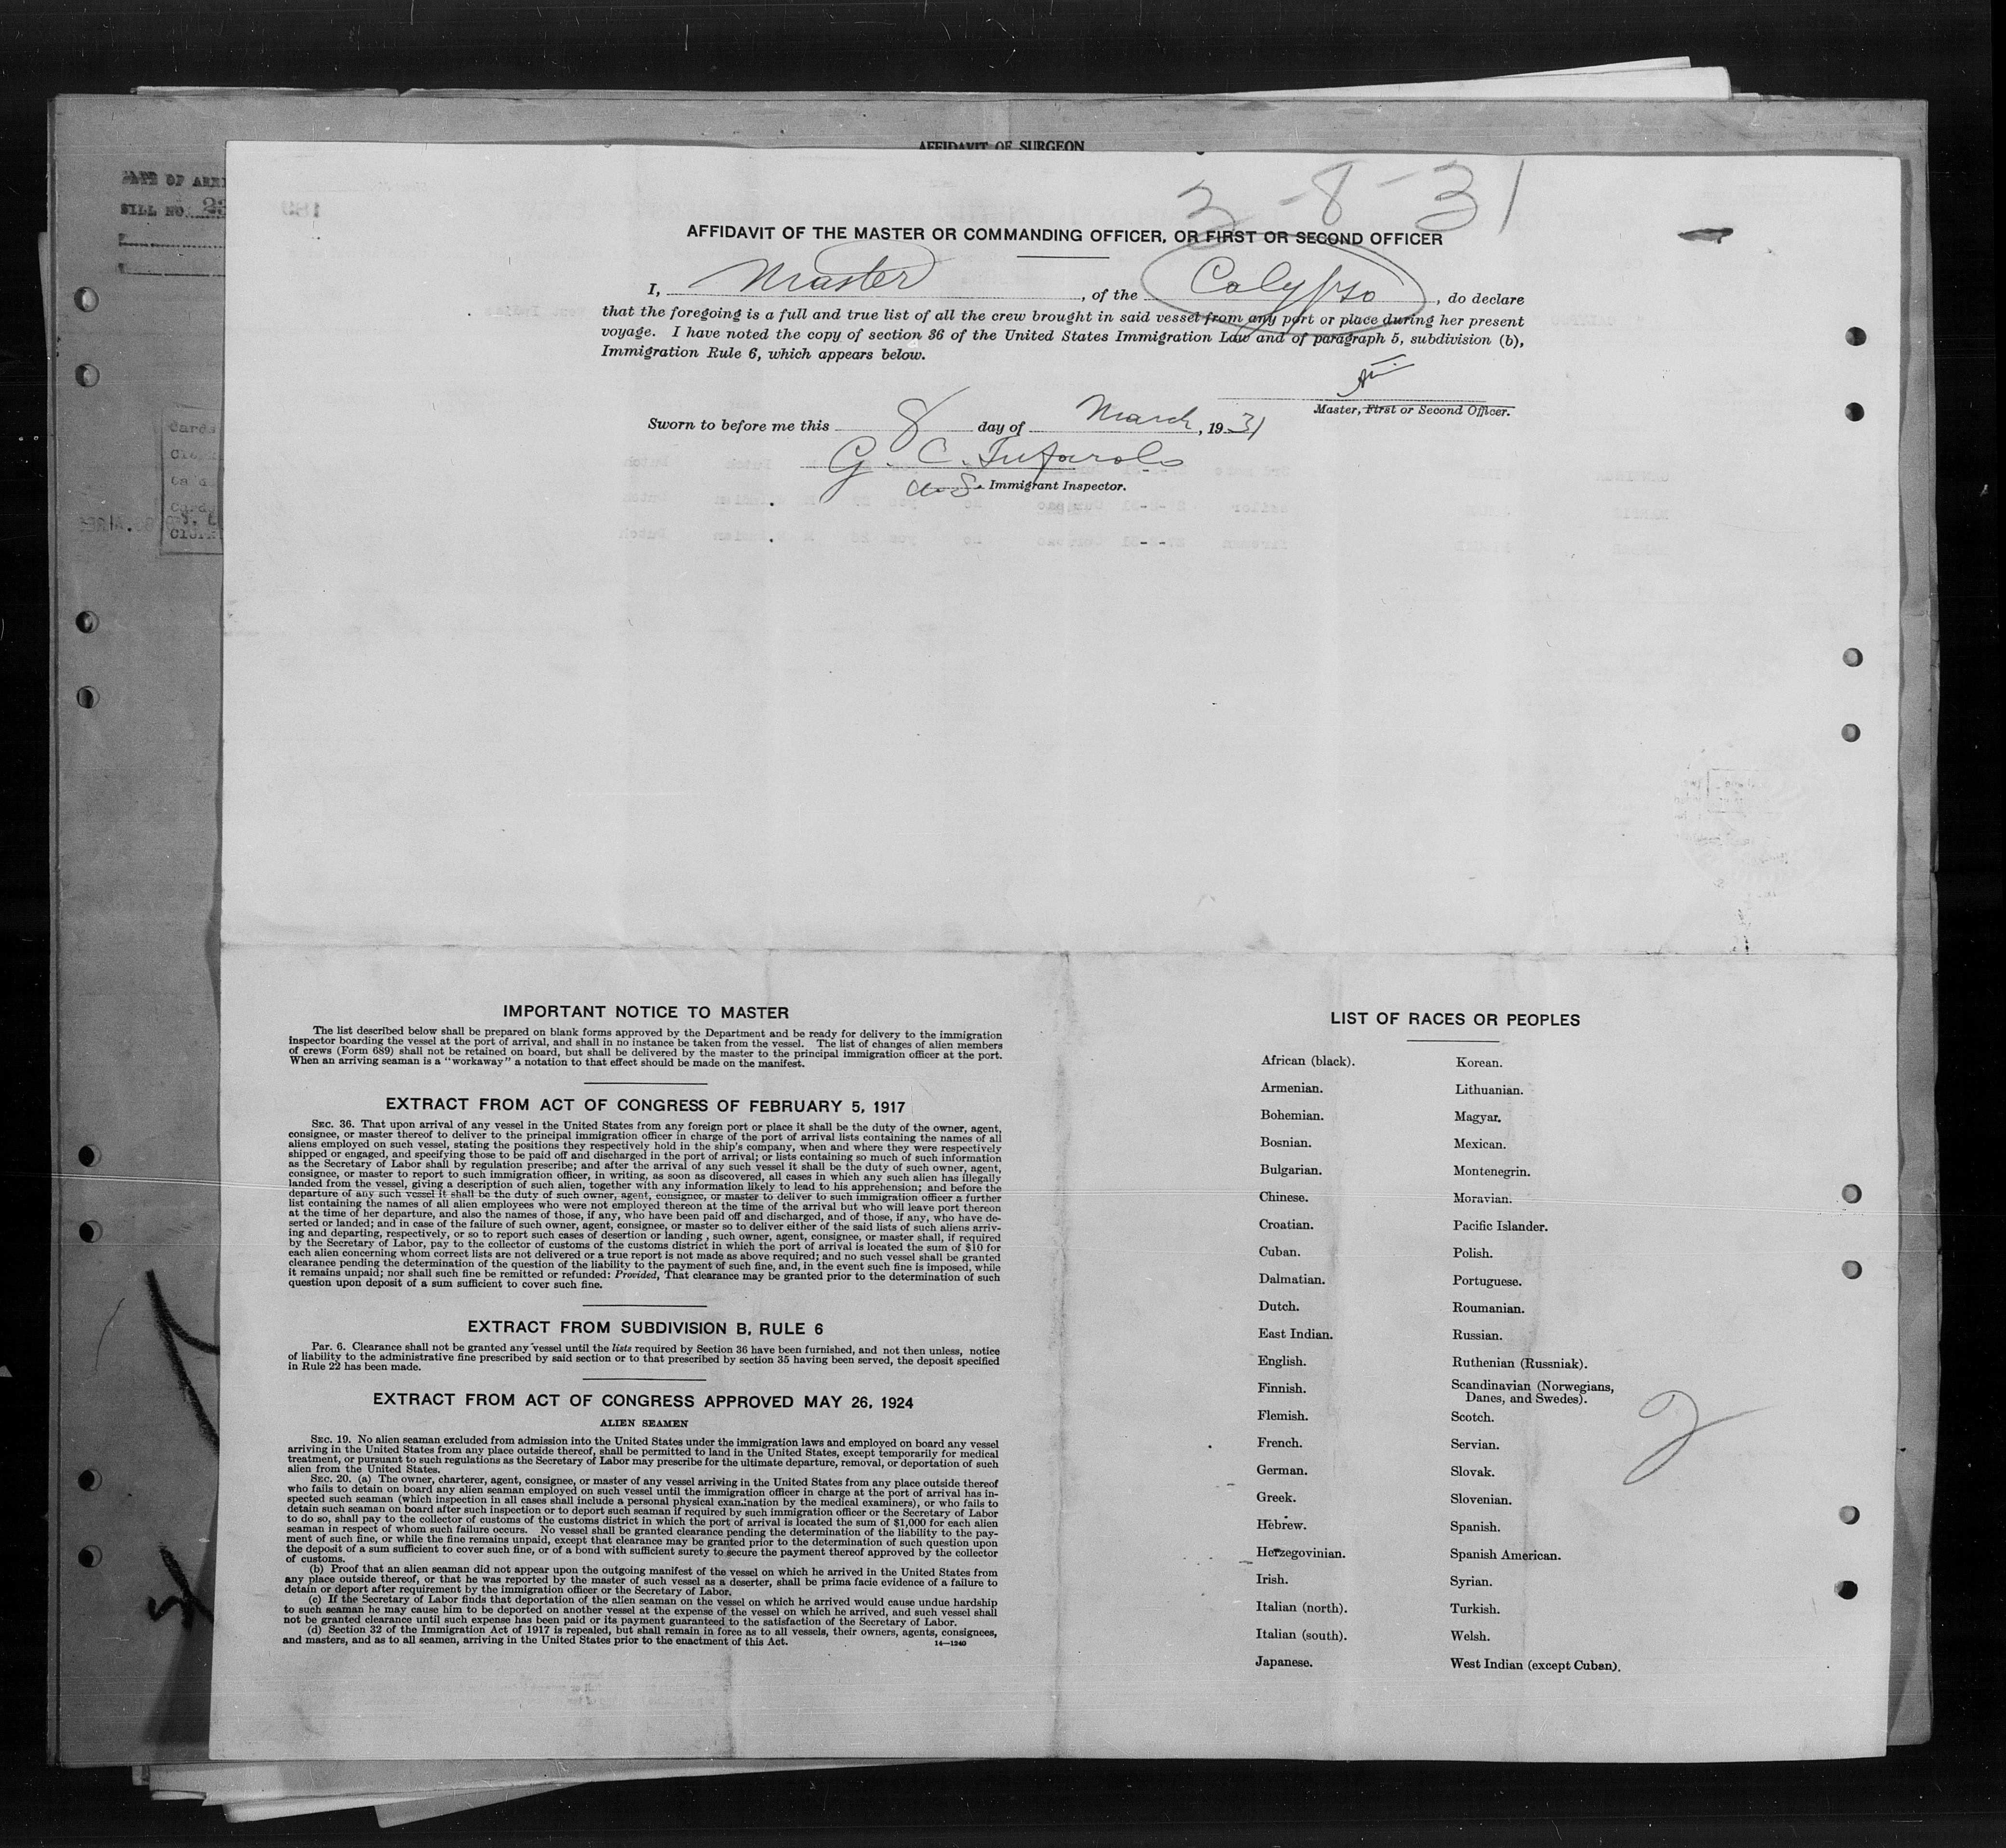 AFFIDAVIT OF SURGEON
DATE OF ARRI
BILL NO. 23
3-8-31
AFFIDAVIT OF THE MASTER OR COMMANDING OFFICER, OR FIRST OR SECOND OFFICER
I, Master, of the Calypso, do declare
that the foregoing is a full and true list of all the crew brought in said vessel from any port or place during her present
voyage. I have noted the copy of section 36 of the United States Immigration Law and of paragraph 5, subdivision (b),
Immigration Rule 6, which appears below.
Master, First or Second Officer.
Sworn to before me this 8 day of March, 1931
G. C. Tufarolo
Immigrant Inspector.
Cards
IMPORTANT NOTICE TO MASTER
The list described below shall be prepared on blank forms approved by the Department and be ready for delivery to the immigration
inspector boarding the vessel at the port of arrival, and shall in no instance be taken from the vessel. The list of changes of alien members
of crews (Form 689) shall not be retained on board, but shall be delivered by the master to the principal immigration officer at the port.
When an arriving seaman is a "workaway" a notation to that effect should be made on the manifest.
EXTRACT FROM ACT OF CONGRESS OF FEBRUARY 5, 1917
SEC. 36. That upon arrival of any vessel in the United States from any foreign port or place it shall be the duty of the owner, agent,
consignee, or master thereof to deliver to the principal immigration officer in charge of the port of arrival lists containing the names of all
aliens employed on such vessel, stating the positions they respectively hold in the ship's company, when and where they were respectively
shipped or engaged, and specifying those to be paid off and discharged in the port of arrival; or lists containing so much of such information
as the Secretary of Labor shall by regulation prescribe; and after the arrival of any such vessel it shall be the duty of such owner, agent,
consignee, or master to report to such immigration officer, in writing, as soon as discovered, all cases in which any such alien has illegally
landed from the vessel, giving a description of such alien, together with any information likely to lead to his apprehension; and before the
departure of any such vessel it shall be the duty of such owner, agent, consignee, or master to deliver to such immigration officer a further
list containing the names of all alien employees who were not employed thereon at the time of the arrival but who will leave port thereon
at the time of her departure, and also the names of those, if any, who have been paid off and discharged, and of those, if any, who have de-
serted or landed; and in case of the failure of such owner, agent, consignee, or master so to deliver either of the said lists of such aliens arriv-
ing and departing, respectively, or so to report such cases of desertion or landing , such owner, agent, consignee, or master shall, if required
by the Secretary of Labor, pay to the collector of customs of the customs district in which the port of arrival is located the sum of $10 for
each alien concerning whom correct lists are not delivered or a true report is not made as above required; and no such vessel shall be granted
clearance pending the determination of the question of the liability to the payment of such fine, and, in the event such fine is imposed, while
it remains unpaid; nor shall such fine be remitted or refunded: Provided, That clearance may be granted prior to the determination of such
question upon deposit of a sum sufficient to cover such fine.
EXTRACT FROM SUBDIVISION B, RULE 6
Par. 6. Clearance shall not be granted any vessel until the lists required by Section 36 have been furnished, and not then unless, notice
of liability to the administrative fine prescribed by said section or to that prescribed by section 35 having been served, the deposit specified
in Rule 22 has been made.
EXTRACT FROM ACT OF CONGRESS APPROVED MAY 26, 1924
ALIEN SEAMEN
SEC. 19. No alien seaman excluded from admission into the United States under the immigration laws and employed on board any vessel
arriving in the United States from any place outside thereof, shall be permitted to land in the United States, except temporarily for medical
treatment, or pursuant to such regulations as the Secretary of Labor may prescribe for the ultimate departure, removal, or deportation of such
alien from the United States.
SEC. 20. (a) The owner, charterer, agent, consignee, or master of any vessel arriving in the United States from any place outside thereof
who fails to detain on board any alien seaman employed on such vessel until the immigration officer in charge at the port of arrival has in-
spected such seaman (which inspection in all cases shall include a personal physical examination by the medical examiners), or who fails to
detain such seaman on board after such inspection or to deport such seaman if required by such immigration officer or the Secretary of Labor
to do so, shall pay to the collector of customs of the customs district in which the port of arrival is located the sum of $1,000 for each alien
seaman in respect of whom such failure occurs. No vessel shall be granted clearance pending the determination of the liability to the pay-
ment of such fine, or while the fine remains unpaid, except that clearance may be granted prior to the determination of such question upon
the deposit of a sum sufficient to cover such fine, or of a bond with sufficient surety to secure the payment thereof approved by the collector
of customs.
(b) Proof that an alien seaman did not appear upon the outgoing manifest of the vessel on which he arrived in the United States from
any place outside thereof, or that he was reported by the master of such vessel as a deserter, shall be prima facie evidence of a failure to
detain or deport after requirement by the immigration officer or the Secretary of Labor.
(c) If the Secretary of Labor finds that deportation of the alien seaman on the vessel on which he arrived would cause undue hardship
to such seaman he may cause him to be deported on another vessel at the expense of the vessel on which he arrived, and such vessel shall
not be granted clearance until such expense has been paid or its payment guaranteed to the satisfaction of the Secretary of Labor.
(d) Section 32 of the Immigration Act of 1917 is repealed, but shall remain in force as to all vessels, their owners, agents, consignees,
and masters, and as to all seamen, arriving in the United States prior to the enactment of this Act.
14—1240
LIST OF RACES OR PEOPLES
African (black).
Armenian.
Bohemian.
Bosnian.
Bulgarian.
Chinese.
Croatian.
Cuban.
Dalmatian.
Dutch.
East Indian.
English.
Finnish.
Flemish.
French.
German.
Greek.
Hebrew.
Herzegovinian.
Irish.
Italian (north).
Italian (south).
Japanese.
Korean.
Lithuanian.
Magyar.
Mexican.
Montenegrin.
Moravian.
Pacific Islander.
Polish.
Portuguese.
Roumanian.
Russian.
Ruthenian (Russniak).
Scandinavian (Norwegians,
Danes, and Swedes).
Scotch.
Servian.
Slovak.
Slovenian.
Spanish.
Spanish American.
Syrian.
Turkish.
Welsh.
West Indian (except Cuban).
2